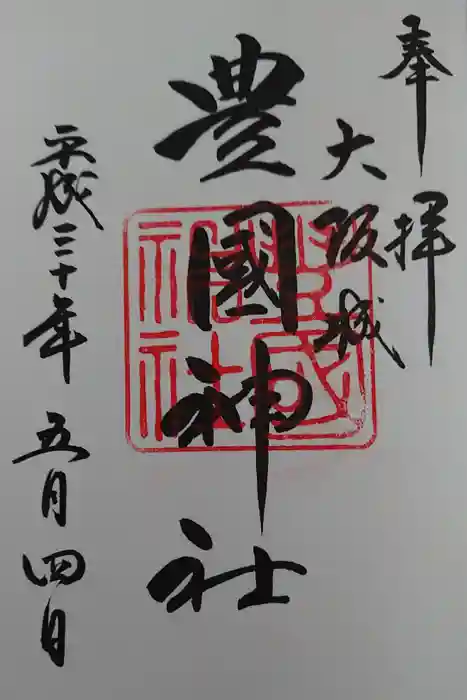 奉拝
大阪城
豊國神社
平成三十年五月四日
豊國神社